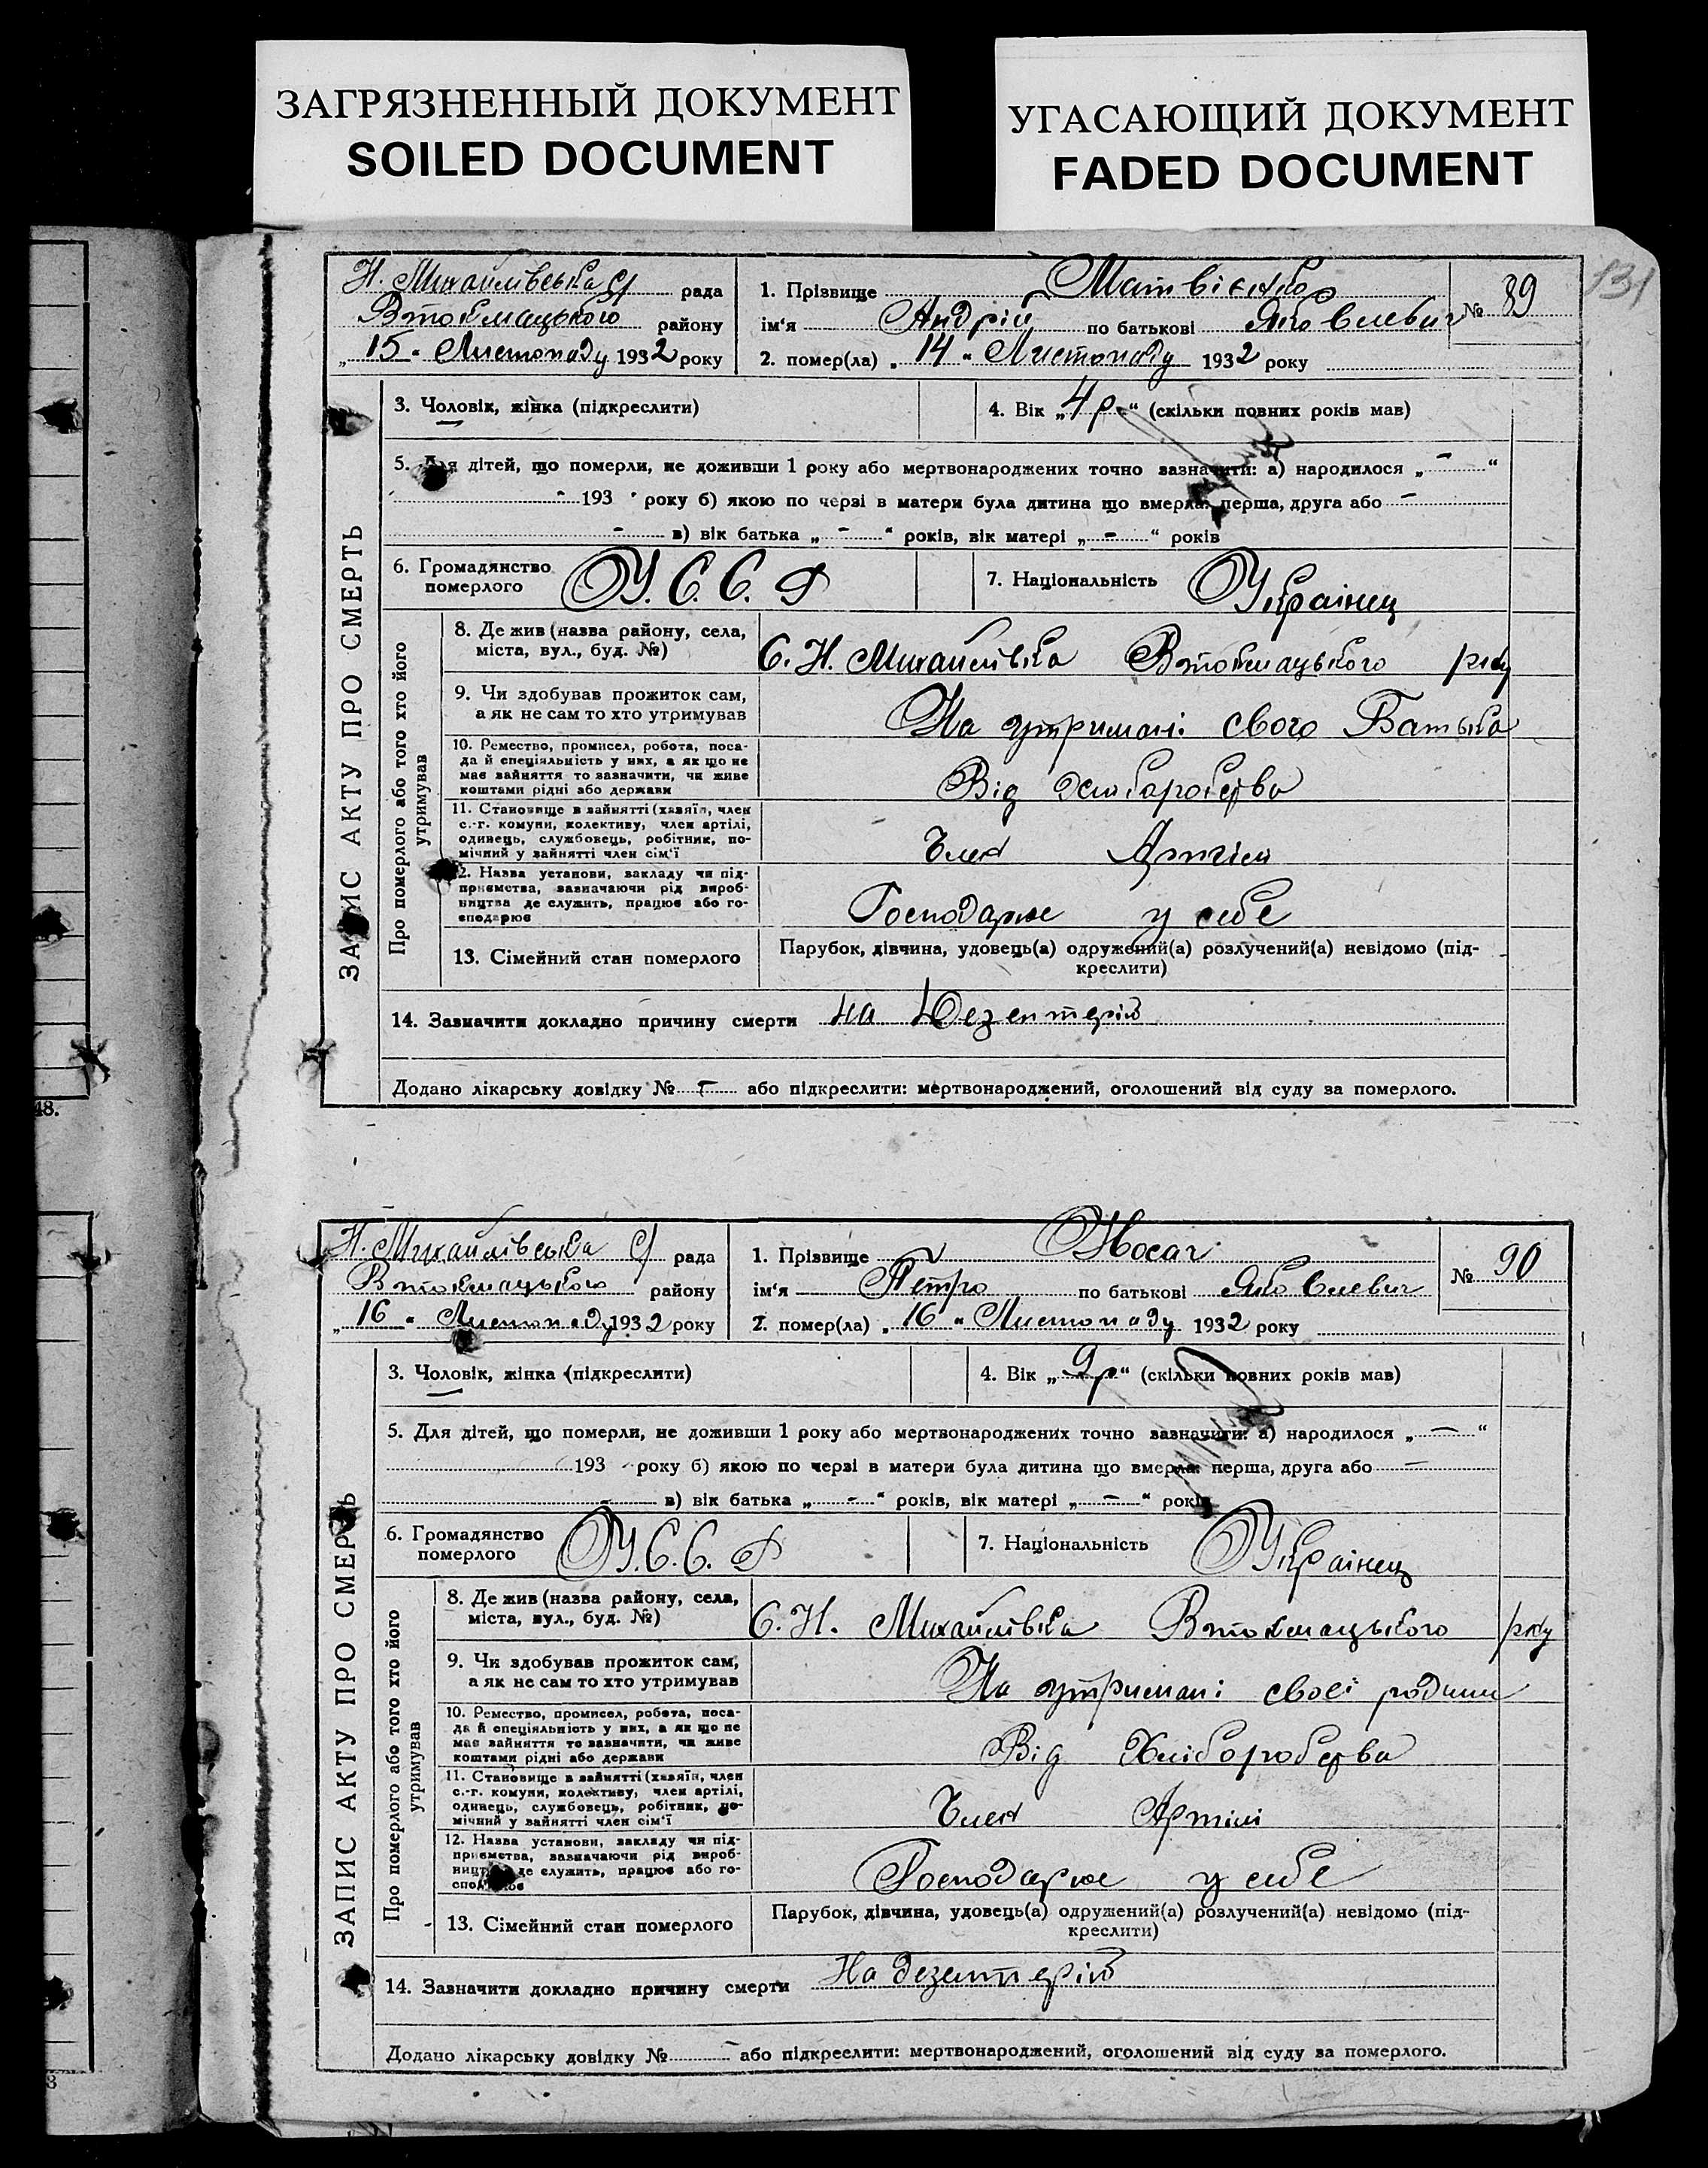 ЗАГРЯЗНЕННЫЙ ДОКУМЕНТ
SOILED DOCUMENT
УГАСАЮЩИЙ ДОКУМЕНТ
FADED DOCUMENT
131
Н. Михайлівська с/ рада
Втокмацького району
„15“ Листопаду 1932 року
1. Прізвище Матвієнко
ім'я Андрій по батькові Яковлевич
№ 89
2. помер(ла) „14“ Листопаду 1932 року
ЗАПИС АКТУ ПРО СМЕРТЬ
3. Чоловік, жінка (підкреслити)
4. Вік „4 р.“ (скільки повних років мав)
5. Для дітей, що померли, не доживши 1 року або мертвонароджених точно зазначити: а) народилося „-“
- 193 - року б) якою по черзі в матери була дитина що вмерла: перша, друга або -
- в) вік батька „-“ років, вік матері „-“ років
6. Громадянство
померлого
У.С.С.Р
7. Національність Українец
Про померлого або того хто його
утримував
8. Де жив (назва району, села,
міста, вул., буд. №)
С. Н. Михайлівка Втокмацького р-ну
9. Чи здобував прожиток сам,
а як не сам то хто утримував
На утримані свого Батька
10. Ремество, промисел, робота, поса-
да й спеціяльність у них, а як що не
має зайняття то зазначити, чи живе
коштами рідні або держави
Від хлібаробства
11. Становище в зайнятті (хазяїн, член
с.-г. комуни, колективу, член артілі,
одинець, службовець, робітник, по-
мічний у зайнятті член сім'ї
Член Артілі
12. Назва установи, закладу чи під-
приємства, зазначаючи рід вироб-
ництва де служить, працює або го-
сподарює
Господарює у себе
13. Сімейний стан померлого
Парубок, дівчина, удовець(а) одружений(а) розлучений(а) невідомо (під-
креслити)
14. Зазначити докладно причину смерти на Дезентерію
Додано лікарську довідку № - або підкреслити: мертвонароджений, оголошений від суду за померлого.
48.
Н. Михайлівська с/ рада
Втокмацького району
„16“ Листопаду 1932 року
1. Прізвище Носач
ім'я Петро по батькові Яковлевич
№ 90
2. помер(ла) „16“ Листопаду 1932 року
ЗАПИС АКТУ ПРО СМЕРТЬ
3. Чоловік, жінка (підкреслити)
4. Вік „9 р“ (скільки повних років мав)
5. Для дітей, що померли, не доживши 1 року або мертвонароджених точно зазначити: а) народилося „-“
193 - року б) якою по черзі в матери була дитина що вмерла: перша, друга або -
- в) вік батька „-“ років, вік матері „-“ років
6. Громадянство
померлого
У.С.С.Р
7. Національність Українец
Про померлого або того хто його
утримував
8. Де жив (назва району, села,
міста, вул., буд. №)
С. Н. Михайлівка Втокмацького р-ну
9. Чи здобував прожиток сам,
а як не сам то хто утримував
На утримані своєї родини
10. Ремество, промисел, робота, поса-
да й спеціяльність у них, а як що не
має зайняття то зазначити, чи живе
коштами рідні або держави
Від Хліборобства
11. Становище в зайнятті (хазяїн, член
с.-г. комуни, колективу, член артілі,
одинець, службовець, робітник, по-
мічний у зайнятті член сім'ї
Член Артілі
12. Назва установи, закладу чи під-
приємства, зазначаючи рід вироб-
ництва де служить, працює або го-
сподарює
Господарює у себе
13. Сімейний стан померлого
Парубок, дівчина, удовець(а) одружений(а) розлучений(а) невідомо (під-
креслити)
14. Зазначити докладно причину смерти На дезентерію
Додано лікарську довідку № - або підкреслити: мертвонароджений, оголошений від суду за померлого.